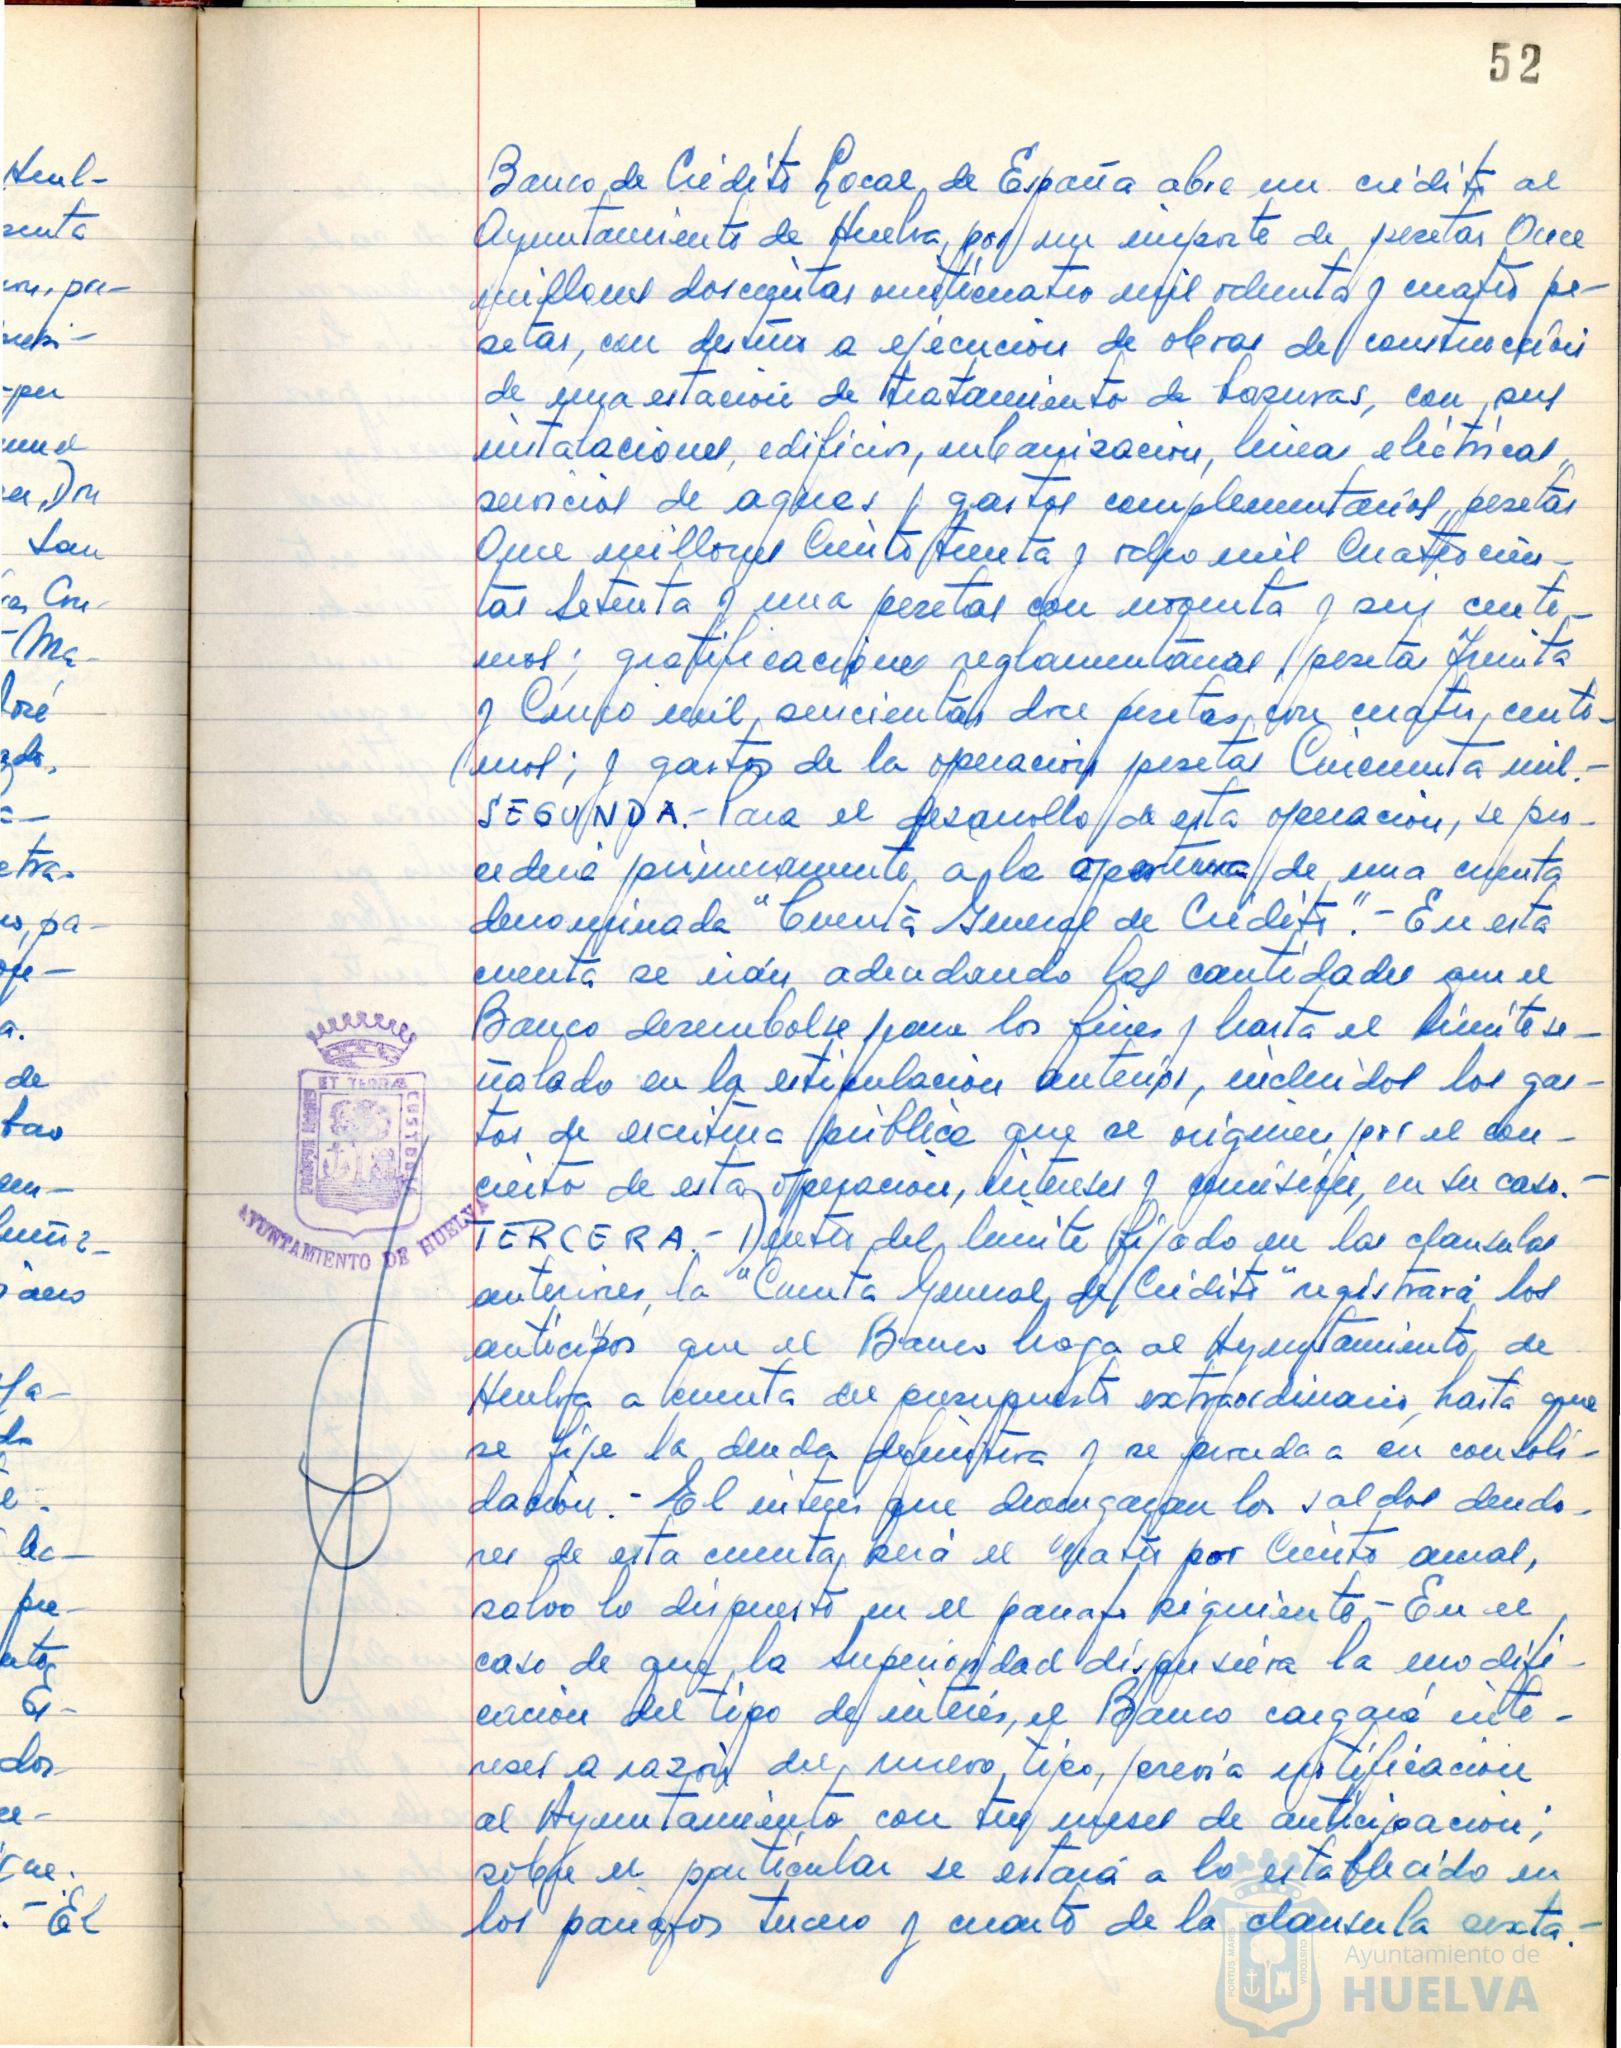 52
Banco de Crédito Local de España abre un crédito al
Ayuntamiento de Huelva, por un importe de pesetas Once
millones doscientas veinticuatro mil ochenta y cuatro pe-
setas, con destino a ejecución de obras de construcción
de una estación de tratamiento de basuras, con sus
instalaciones, edificios, urbanización, lineas eléctricas,
servicios de aguas y gastos complementarios, pesetas
Once millones Ciento treinta y ocho mil Cuatrocien-
tas setenta y una pesetas con noventa y seis cénti-
mos; gratificaciones reglamentarias, pesetas Treinta
y Cinco mil, seiscientas doce pesetas, con cuatro cénti-
mos; y gastos de la operación pesetas Cincuenta mil.-
SEGUNDA.- Para el desarrollo de esta operación, se pro-
cederá primeramente, a la apertura de una cuenta
denominada "Cuenta General de Crédito".- En esta
cuenta se irán adeudando las cantidades que el
Banco desembolse para los fines y hasta el límite se-
ñalado en la estipulación anterior, incluidos los gas-
tos de escritura pública que se originen por el con-
cierto de esta operación, intereses y comisión, en su caso.-
TERCERA.- Dentro del limite fijado en las clausulas
anteriores, la "Cuenta General de Crédito" registrará los
anticipos que el Banco haga al Ayuntamiento de
Huelva a cuenta del presupuesto extraordinario, hasta que
se fije la deuda definitiva y se proceda a su consoli-
dación.- El interés que devengaran los saldos deudo-
res de esta cuenta, será el cuatro por Ciento anual,
salvo lo dispuesto en el parrafo siguiente.- En el
caso de que la Superioridad dispusiera la modifi-
cación del tipo de interés, el Banco cargará inte-
reses a razón del nuevo tipo, previa notificación
al Ayuntamiento con tres meses de anticipación;
sobre el particular se estará a lo establecido en
los parrafos tercero y cuarto de la clausula sexta.-
PORTUS MARIS ET TERRAE CUSTODIA
AYUNTAMIENTO DE HUELVA
PORTUS MARIS CUSTODIA
Ayuntamiento de
HUELVA